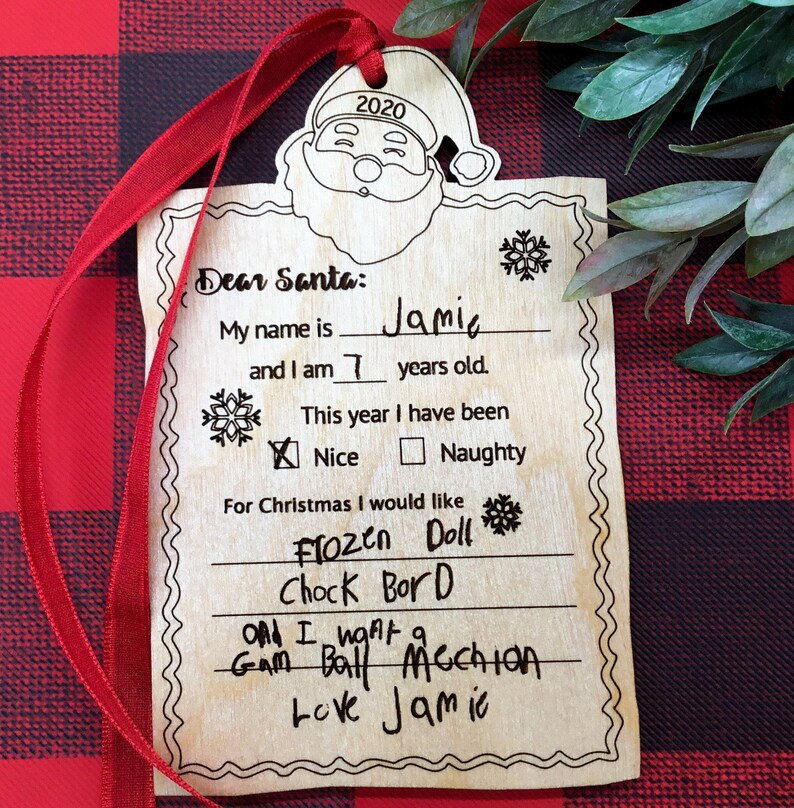 2020
Dear Santa:
My name is Jamie
and I am 7 years old.
This year I have been
Nice Naughty
For Christmas I would like
Frozen Doll
Chock BorD
and I want a
Gam Ball Mechion
Love Jamie